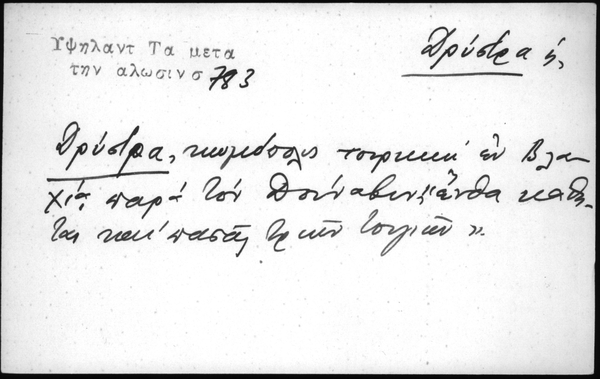 Υψηλαντ Τα μετα
την αλωσιν σ 783
Δρύστρα ἡ,
Δρύστρα, κωμόπολις τουρκική ἐν Βλα-
χίᾳ παρὰ τὸν Δούναβιν, "ἔνθα κάθη-
ται καί πασᾶς τριῶν τουγιῶν".